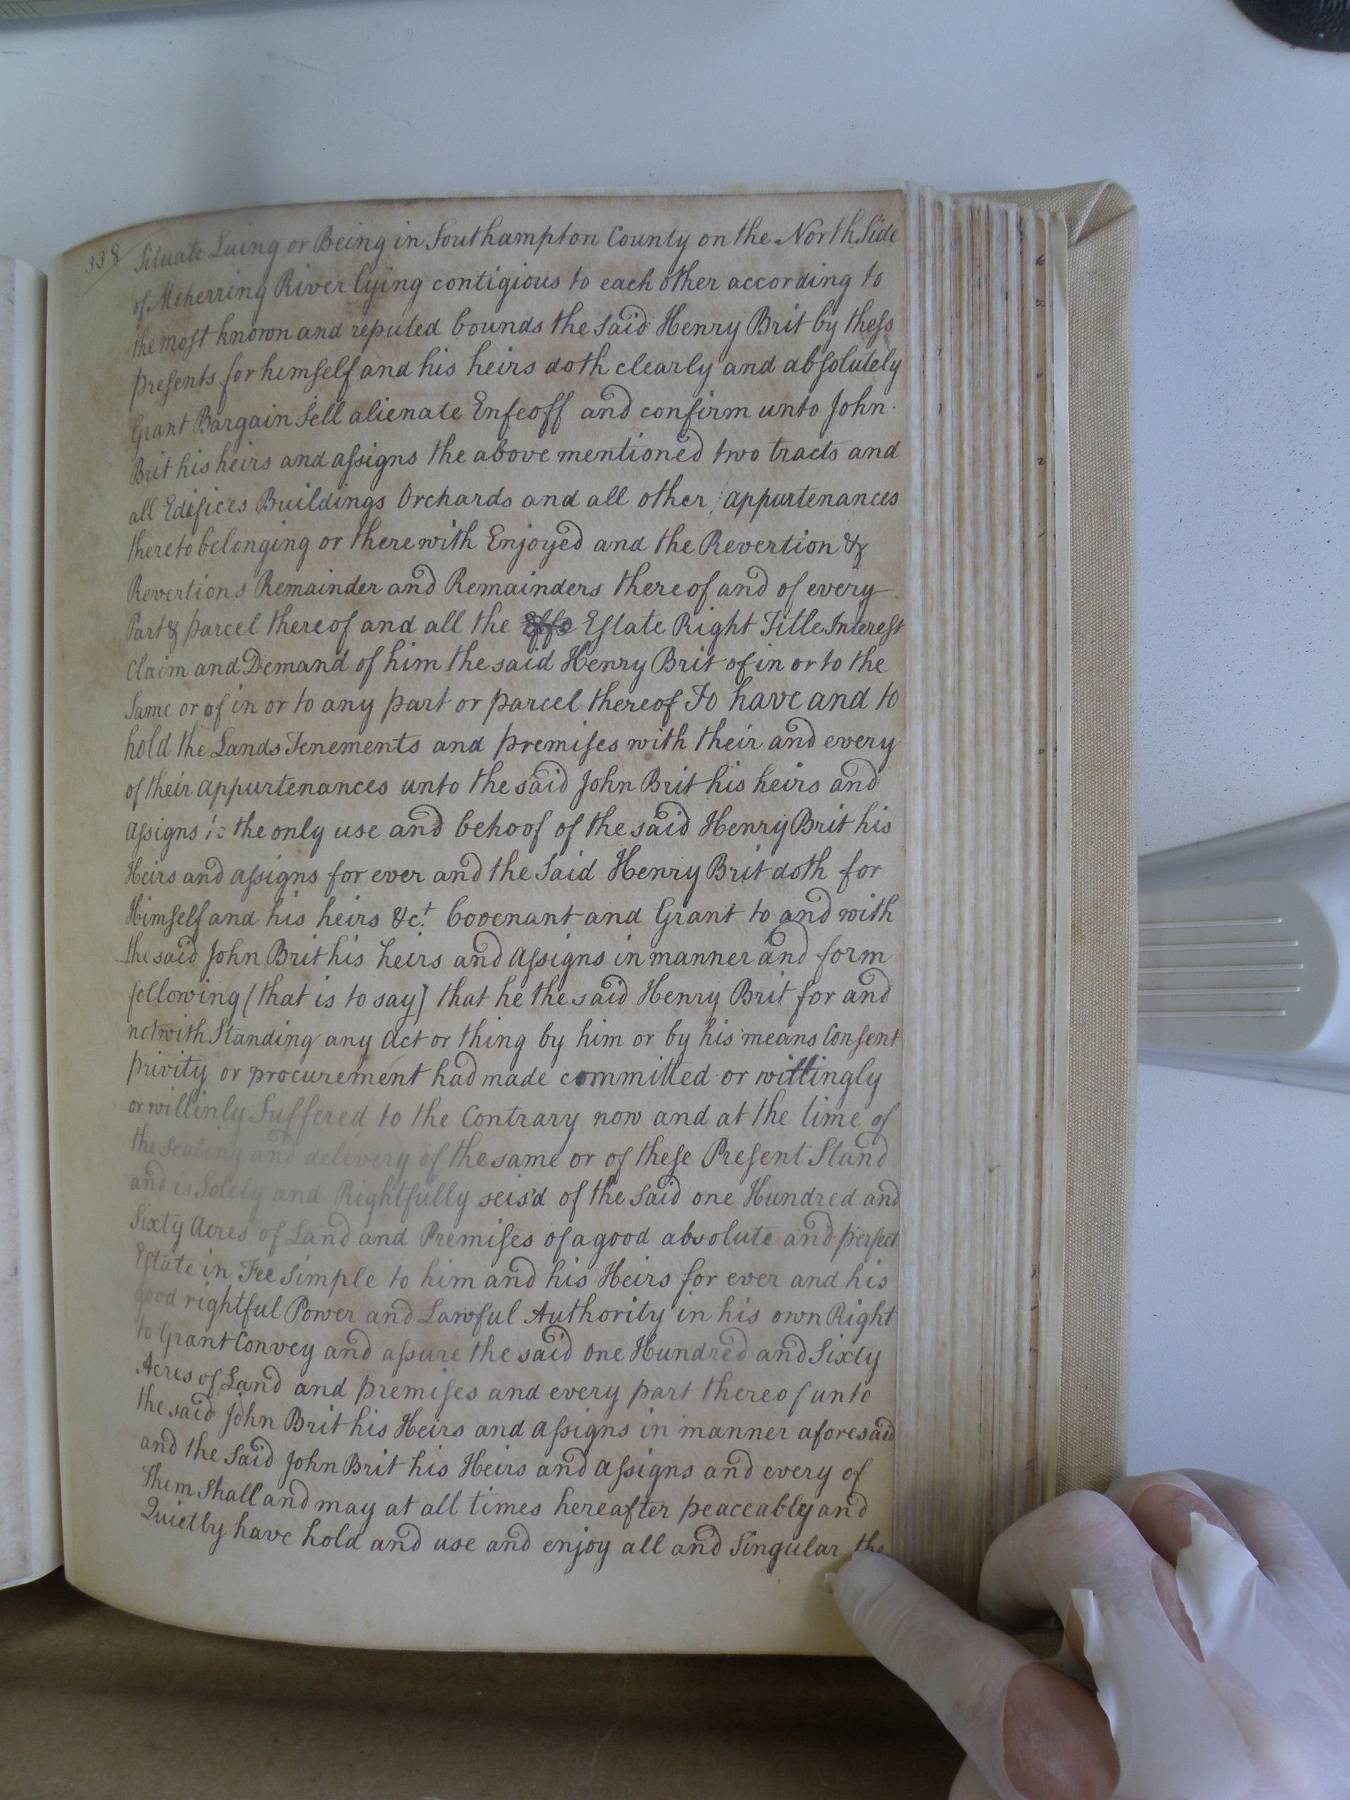 338 Situate Luing or Being in Southampton County on the North Side
of Meherring River lying contigious to each other according to
the most known and reputed bounds the said Henry Brit by thess
presents for himself and his heirs doth clearly and absolutely
Grant Bargain Sell alienate Enfeoff and confirm unto John
Brit his heirs and assigns the above mentioned two tracts and
all Edifices Buildings Orchards and all other appurtenances
thereto belonging or therewith Enjoyed and the Revertion &
Revertions Remainder and Remainders thereof and of every
Part & parcel thereof and all the Estate Right Title Interest
Claim and Demand of him the said Henry Brit of in or to the
Same or of in or to any part or parcel thereof To have and to
hold the Lands Tenements and premises with their and every
of their appurtenances unto the said John Brit his heirs and
assigns to the only use and behoof of the said Henry Brit his
Heirs and assigns for ever and the Said Henry Brit doth for
Himself and his heirs &ct. Covenant and Grant to and with
the said John Brit his heirs and assigns in manner and form
following [that is to say] that he the said Henry Brit for and
notwith Standing any act or thing by him or by his means Consent
privity or procurement had made committed or wittingly
or willinly Suffered to the Contrary now and at the time of
the sealing and delivery of the same or of these Present Stand
and is Solely and Rightfully seis'd of the Said one Hundred and
Sixty acres of Land and Premises of a good absolute and perfect
Estate in Fee Simple to him and his Heirs for ever and his
good rightful Power and Lawful Authority in his own Right
to Grant Convey and assure the said one Hundred and Sixty
Acres of Land and premises and every part thereof unto
the said John Brit his Heirs and assigns in manner aforesaid
and the Said John Brit his Heirs and assigns and every of
them Shall and may at all times hereafter peaceably and
Quietby have hold and use and enjoy all and Singular the